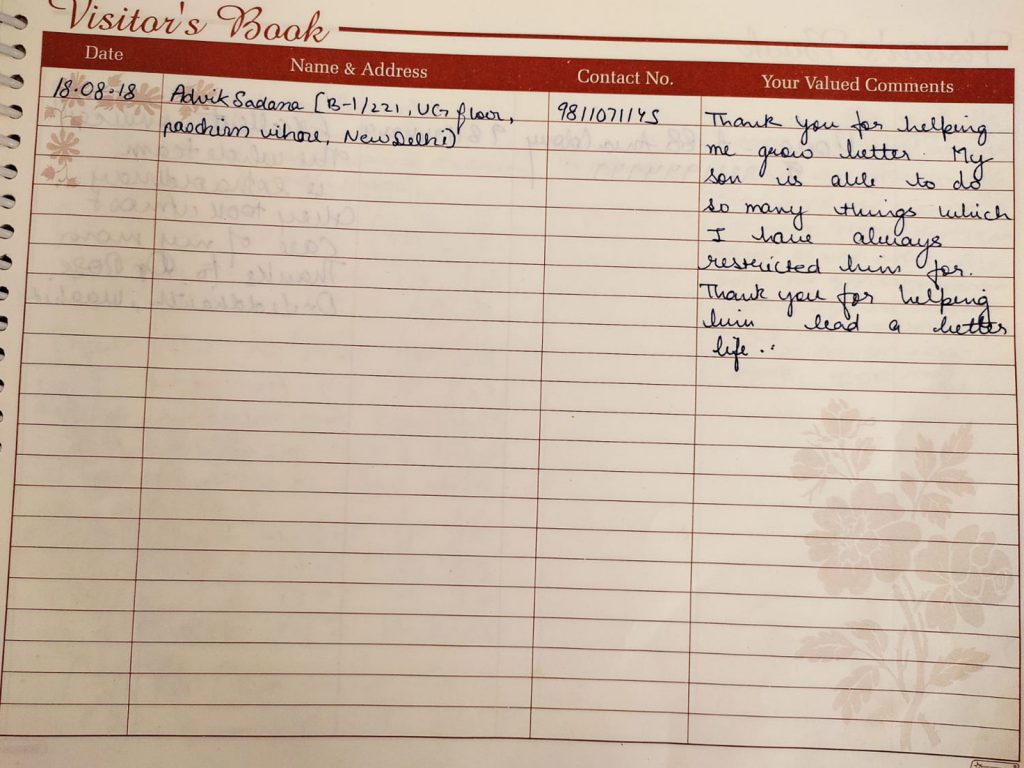 Visitor's Book
Date Name & Address Contact No. Your Valued Comments
18.08.18
Advik Sadana [B-1/221, UG floor,
paschim vihore, New Delhi)
9811071145
Thank you for helping
me grow better. My
son is able to do
so many things which
I have always
restricted him for.
Thank you for helping
him lead a better
life..